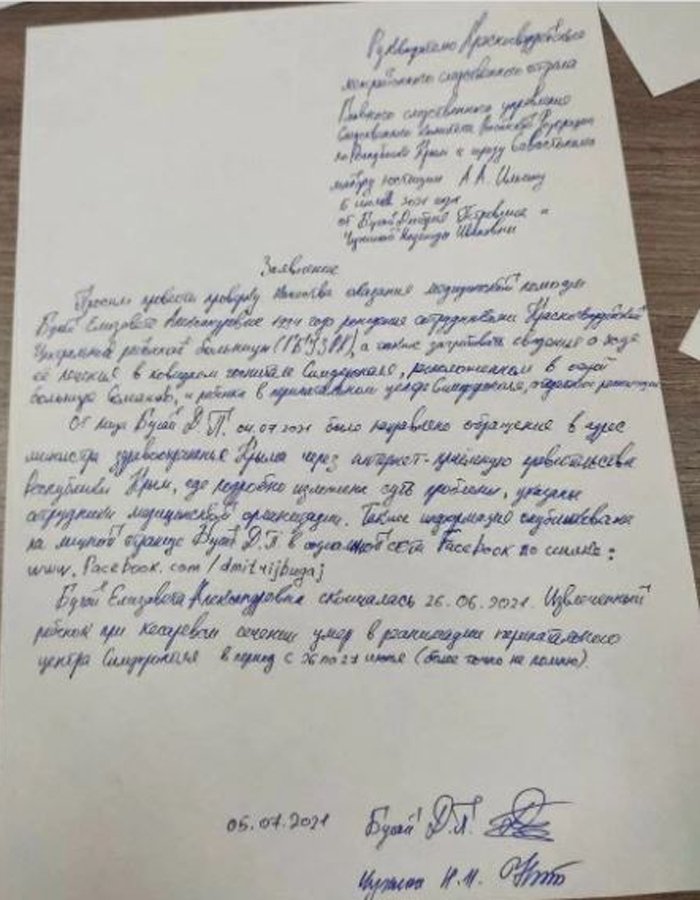 Руководителю Красногвардейского
межрайонного следственного отдела
Главного следственного управления
Следственного комитета Российской Федерации
по Республике Крым и городу Севастополю
майору юстиции А.А.
5 июля 2021 года
от Бугай Дмитрия Петровича и
Надежды Ивановны
Заявление
Просим провести проверку качества оказания медицинской помощи
Бугай Елизавете Александровне 1994 года рождения сотрудниками Красногвардейской
центральной районной больницы ( ), а также затребовать сведения о ходе
её лечения в ковидном госпитале Симферополя, расположенном в
больнице Семашко, и ребенка в перинатальном центре Симферополя, отделение реанимации
От лица Бугай Д.П. 04.07.2021 было направлено обращение в адрес
министра здравоохраненья Крыма через интернет-приёмную правительства
Республики Крым, где подробно изложена суть проблемы, указаны
сотрудники медицинской организации. Также информация опубликована
на личной странице Бугай Д.П в социальной сети Facebook по ссылке:
www.facebook.com/dmitrijbugaj
Бугай Елизавета Александровна скончалась 26.06.2021. Извлеченный
ребенок при кесаревом сечении умер в реанимации перинатального
центра Симферополя в период с 26 по 27 июня (более точно не помню).
05.07.2021 Бугай Д.П.
Н.И.